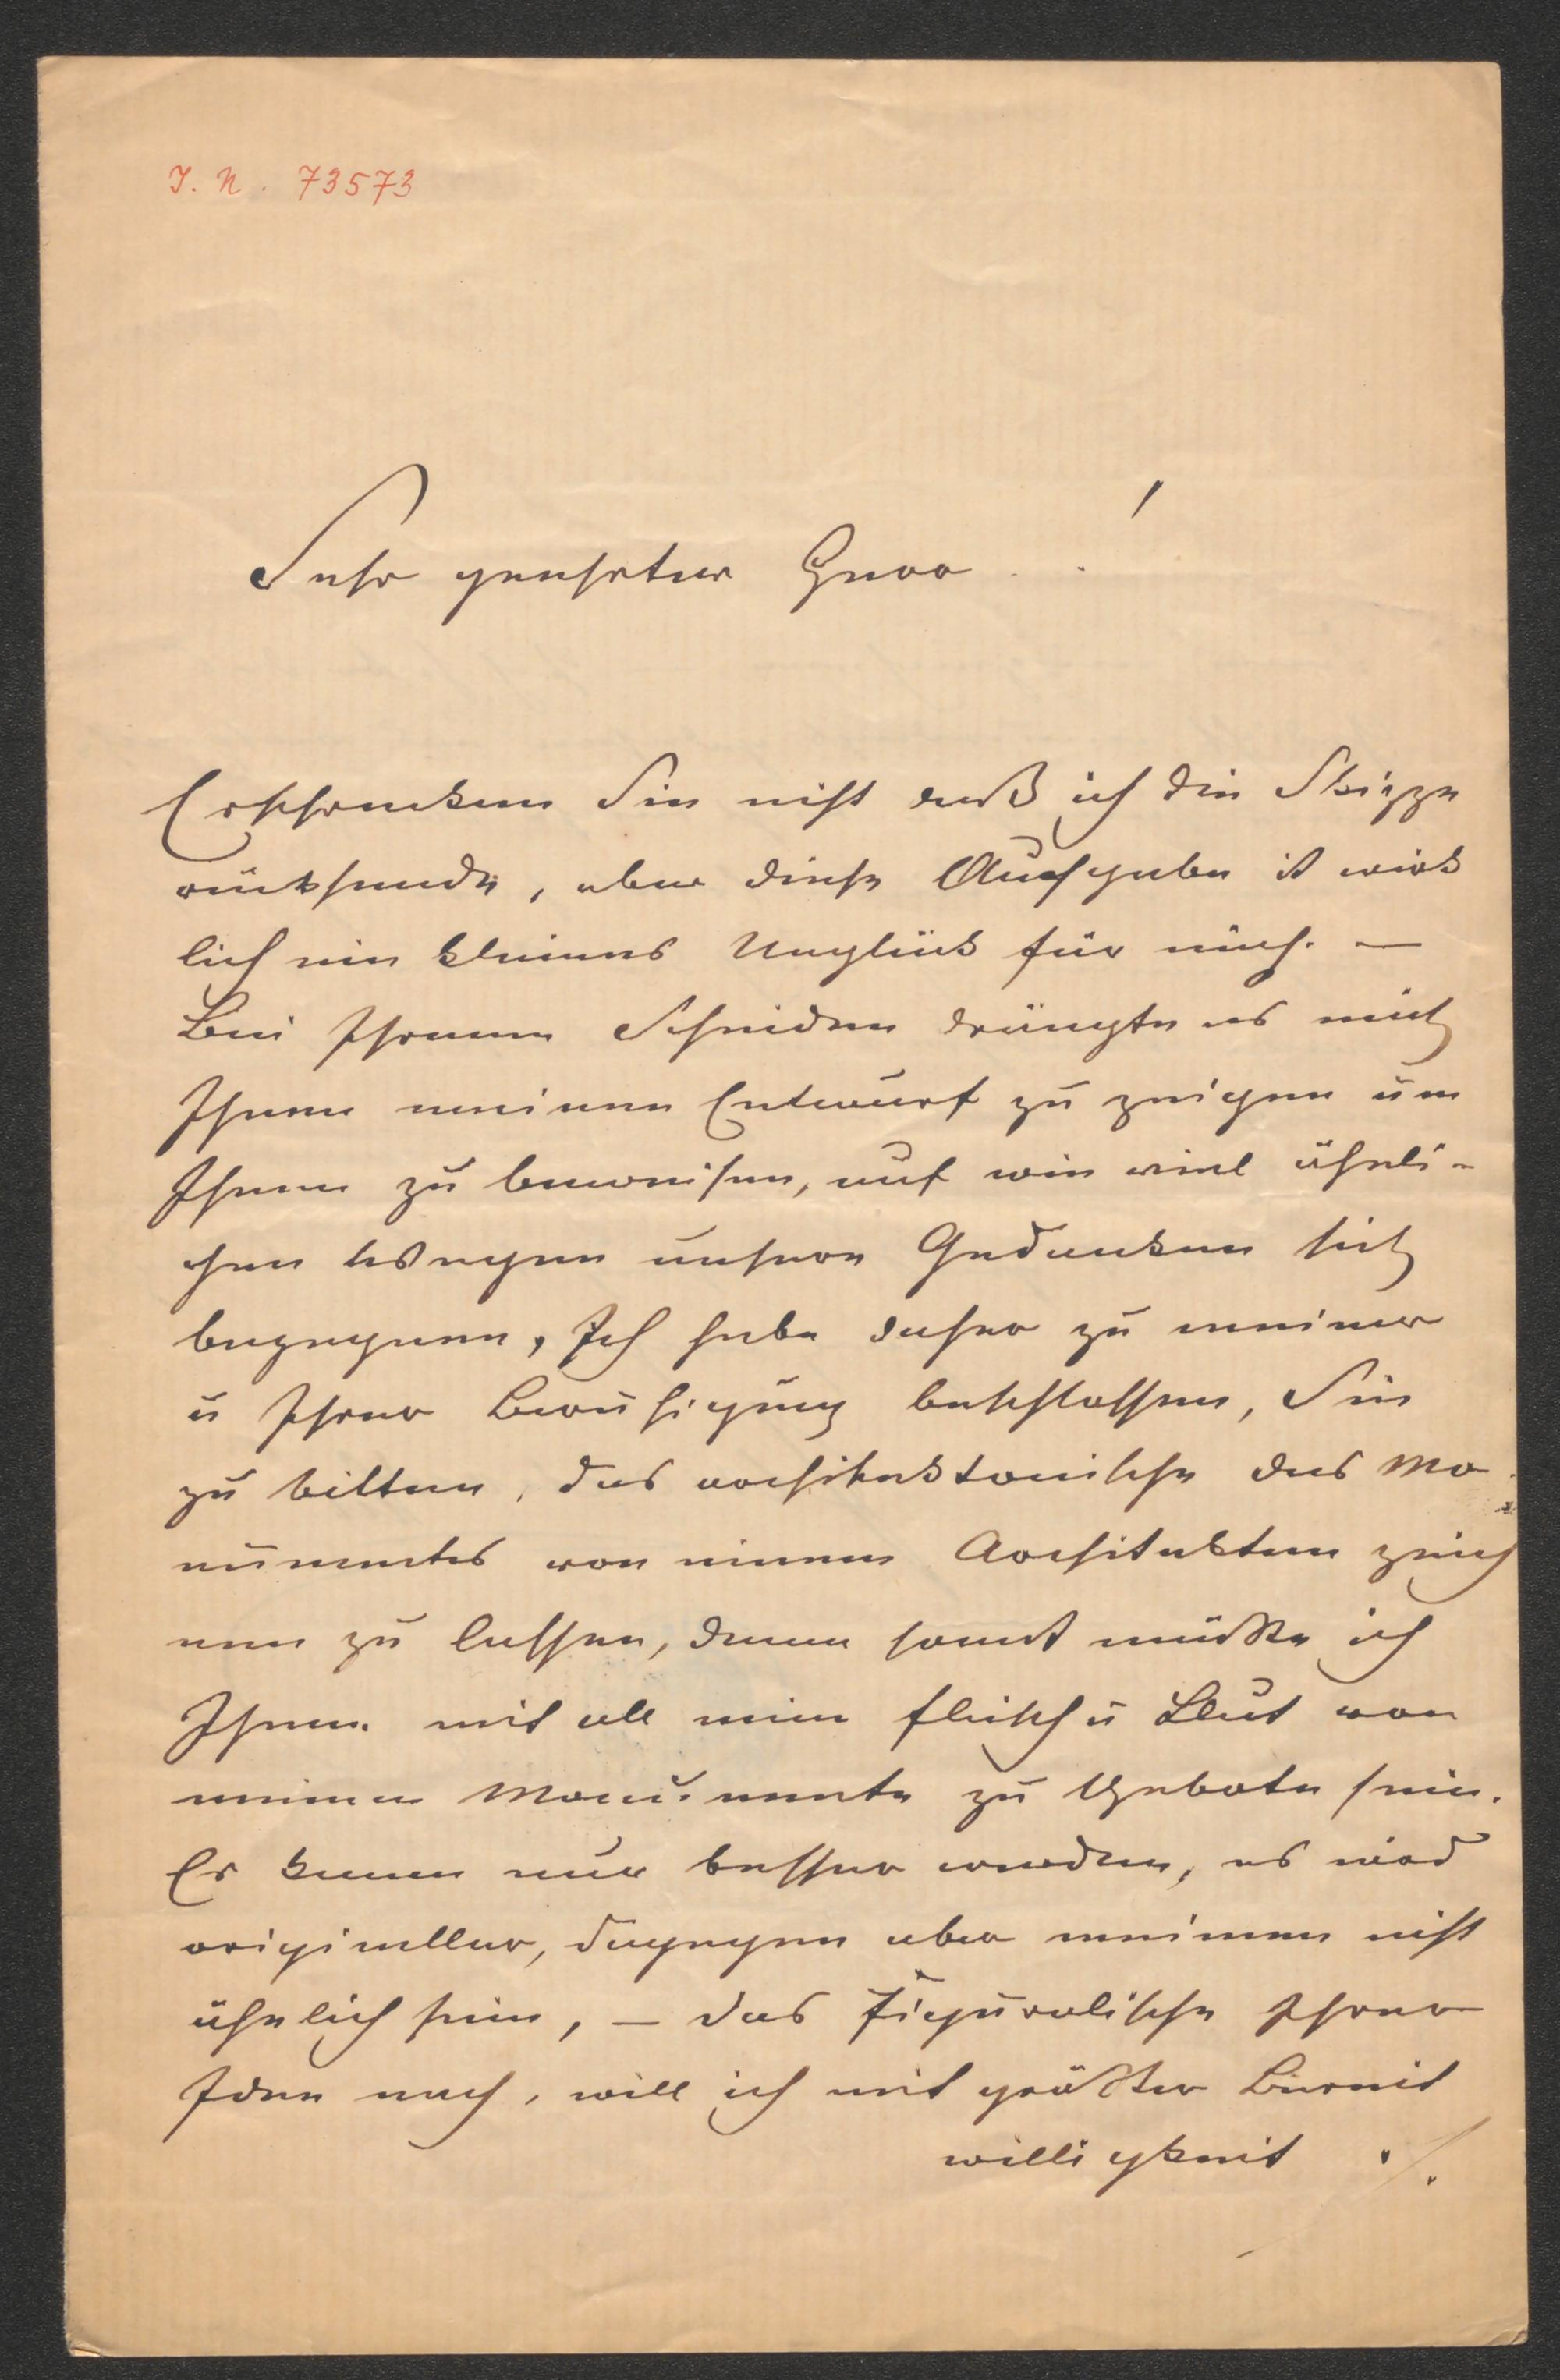 I. N. 73573
Sehr geehrter Herr . . !
Erschrecken Sie nicht daß ich die Skizze
rücksende, aber diese Aufgabe ist wirk
lich ein kleines Unglück für mich. —
Bei Ihrem Scheiden drängte es mich
Ihnen meinen Entwurf zu zeigen um
Ihnen zu beweisen, auf wie viel ähnli-
chen Wegen unsere Gedanken sich
begegnen, Ich habe daher zu meiner
u Ihrer Beruhigung beschlossen, Sie
zu bitten, das architektonische des Mo
numentes von einem Architekten zeich
nen zu lassen, denn sonst müßte ich
Ihnen mit all mein fleisch u Blut von
meinem Monumente zu Gebote sein.
Er kann nur besser werden, es wird
origineller, dagegen aber meinem nicht
ähnlich sein, — das Figuralische Ihrer
Idee nach, will ich mit größter Bereit
willigkeit ./.